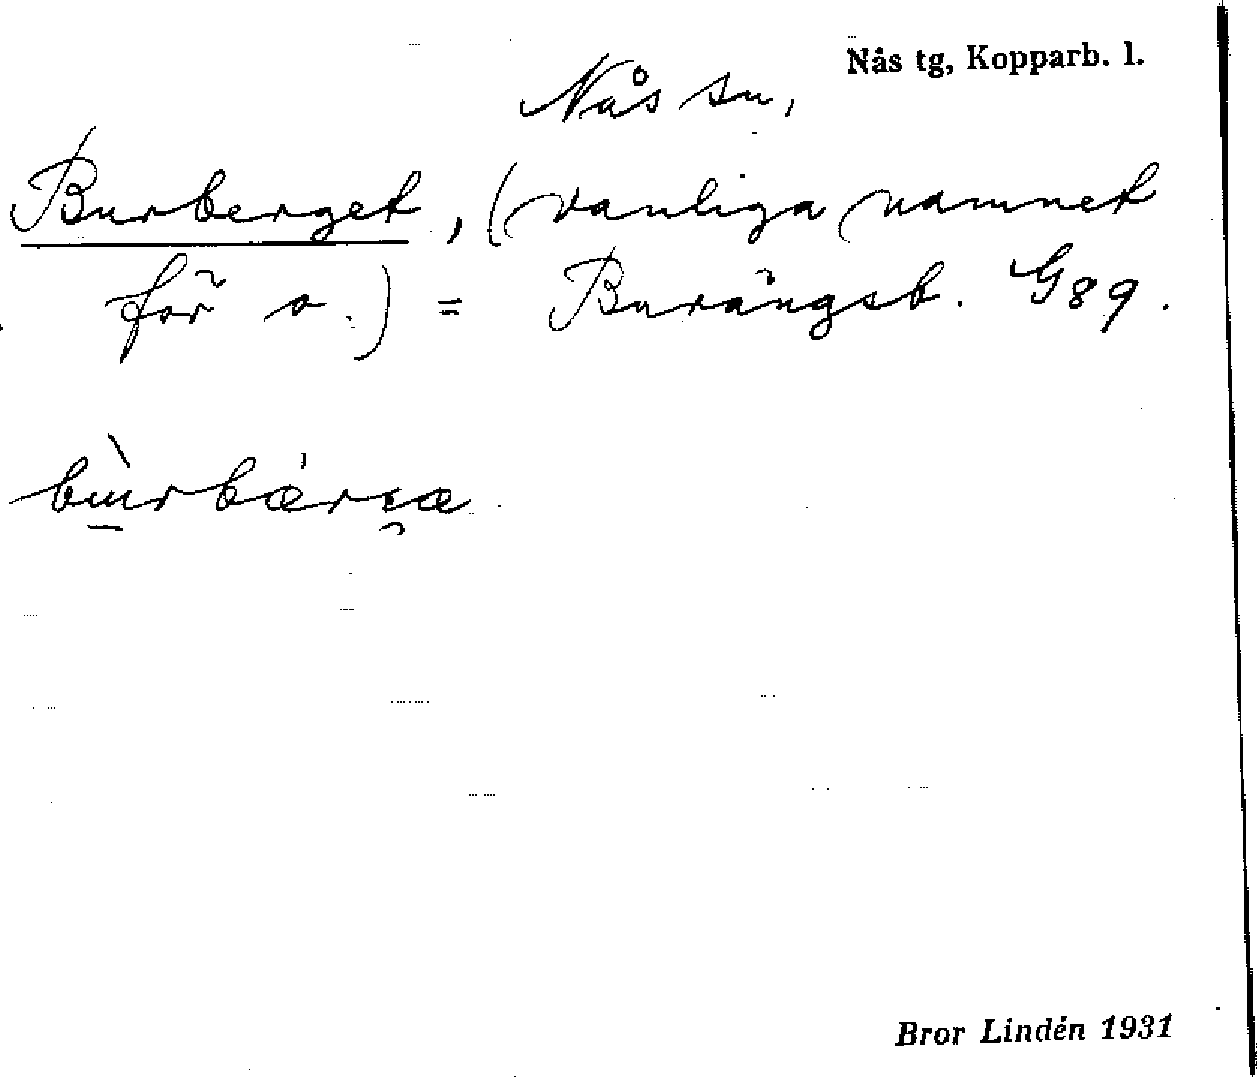 Nås tg, Kopparb. l.
Nås sn,
Burberget, (vanliga namnet
för o.) = Burängsb. G89.
Bror Lindén 1931